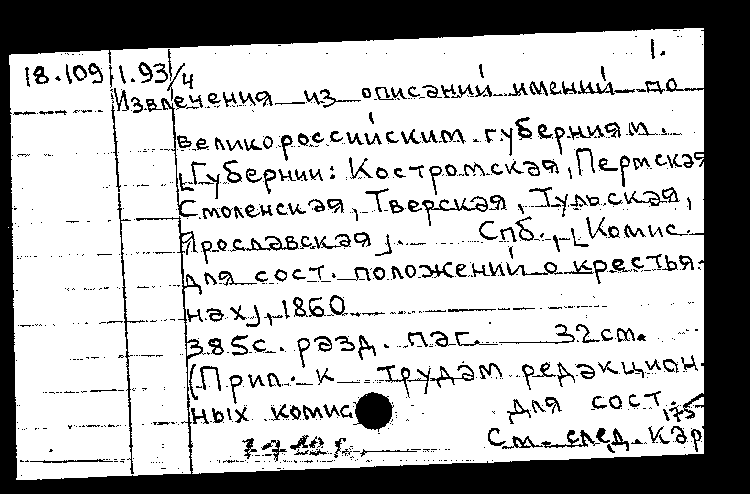 1.
18.109.1.93/4
Извлечения из описаний имений по
великороссийским губерниям.
[Губернии: Костромская, Пермская
Смоленская, Тверская, Тульская,
Ярославская]. Спб., [Комис.
для сост. положений о крестья-
нах], 1860.
385с. разд. паг. 32см.
(Прил. к трудам редакцион-
ных комис для сост.
175
См. след. кар